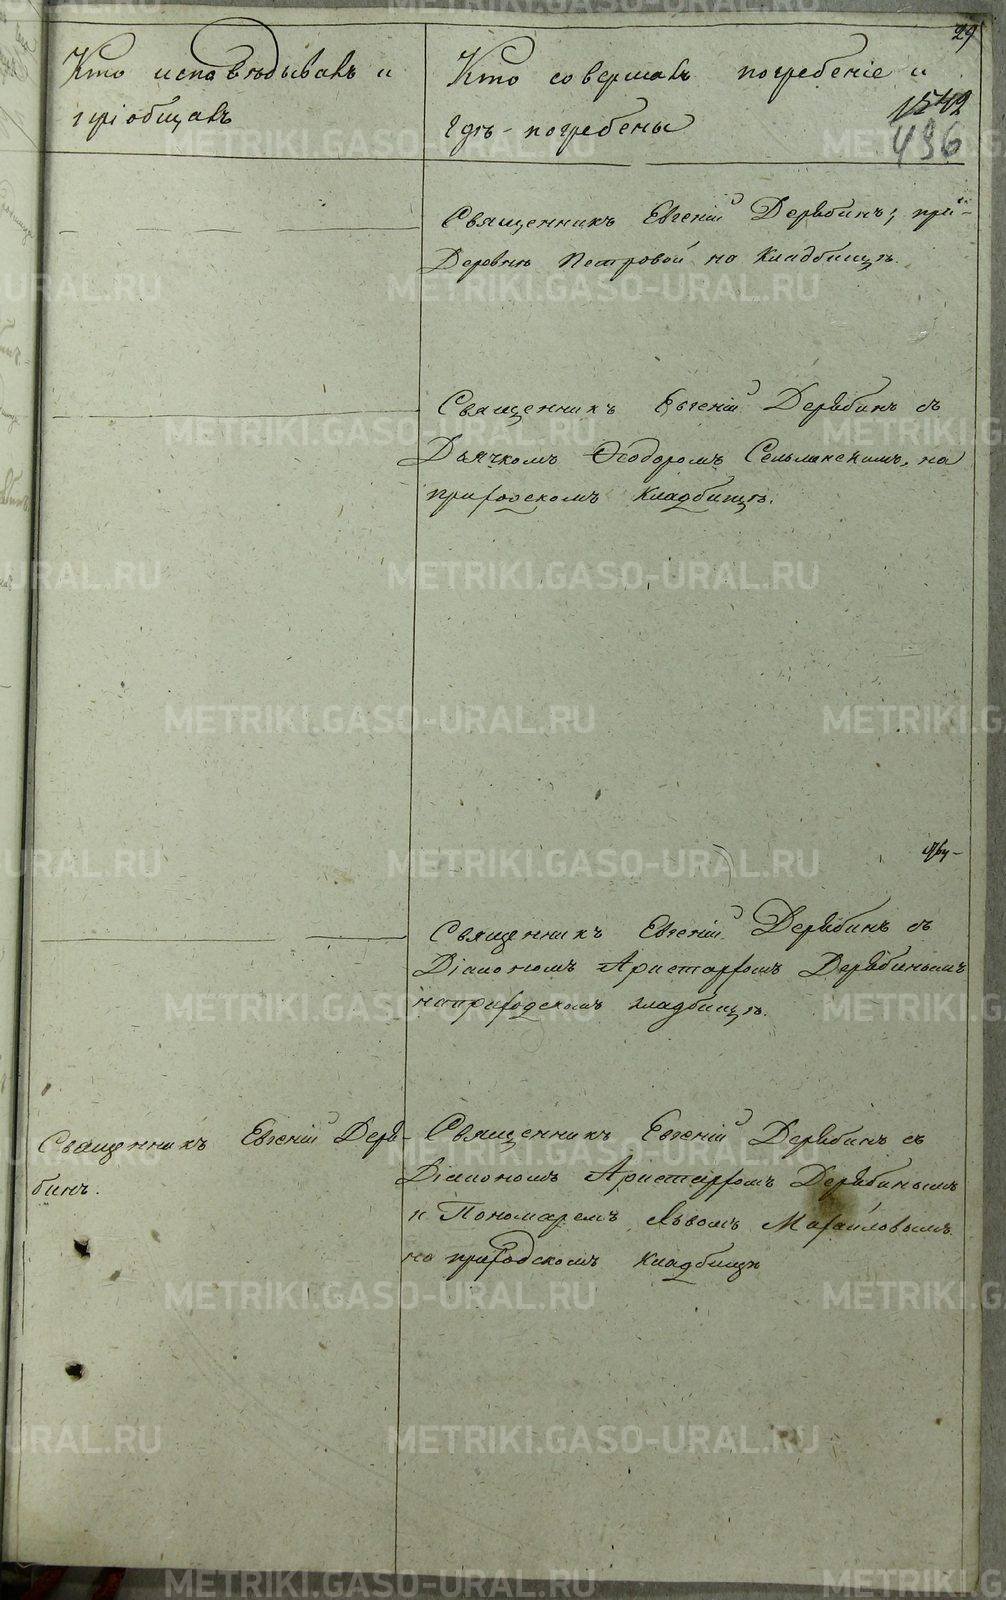 29
Кто исповѣдывалъ и
пріобщалъ
Кто совершалъ погребеніе и
гдѣ погребены
1542
496
Священникъ Евгеній Дерябинъ, при
Деревнѣ Петровой на кладбищѣ.
Священникъ Евгеній Дерябинъ съ
Дьячкомъ Ѳеодоромъ Сельменскимъ, на
приходскомъ кладбищѣ.
Священникъ Евгеній Дерябинъ съ
Діакономъ Аристархомъ Дерябинымъ
на приходскомъ кладбищѣ.
Священникъ Евгеній Деря-
бинъ.
Священникъ Евгеній Дерябинъ съ
Діакономъ Аристархомъ Дерябинымъ
и Пономаремъ Львомъ Михайловымъ
на приходскомъ кладбищѣ
METRIKI.GASO-URAL.RU